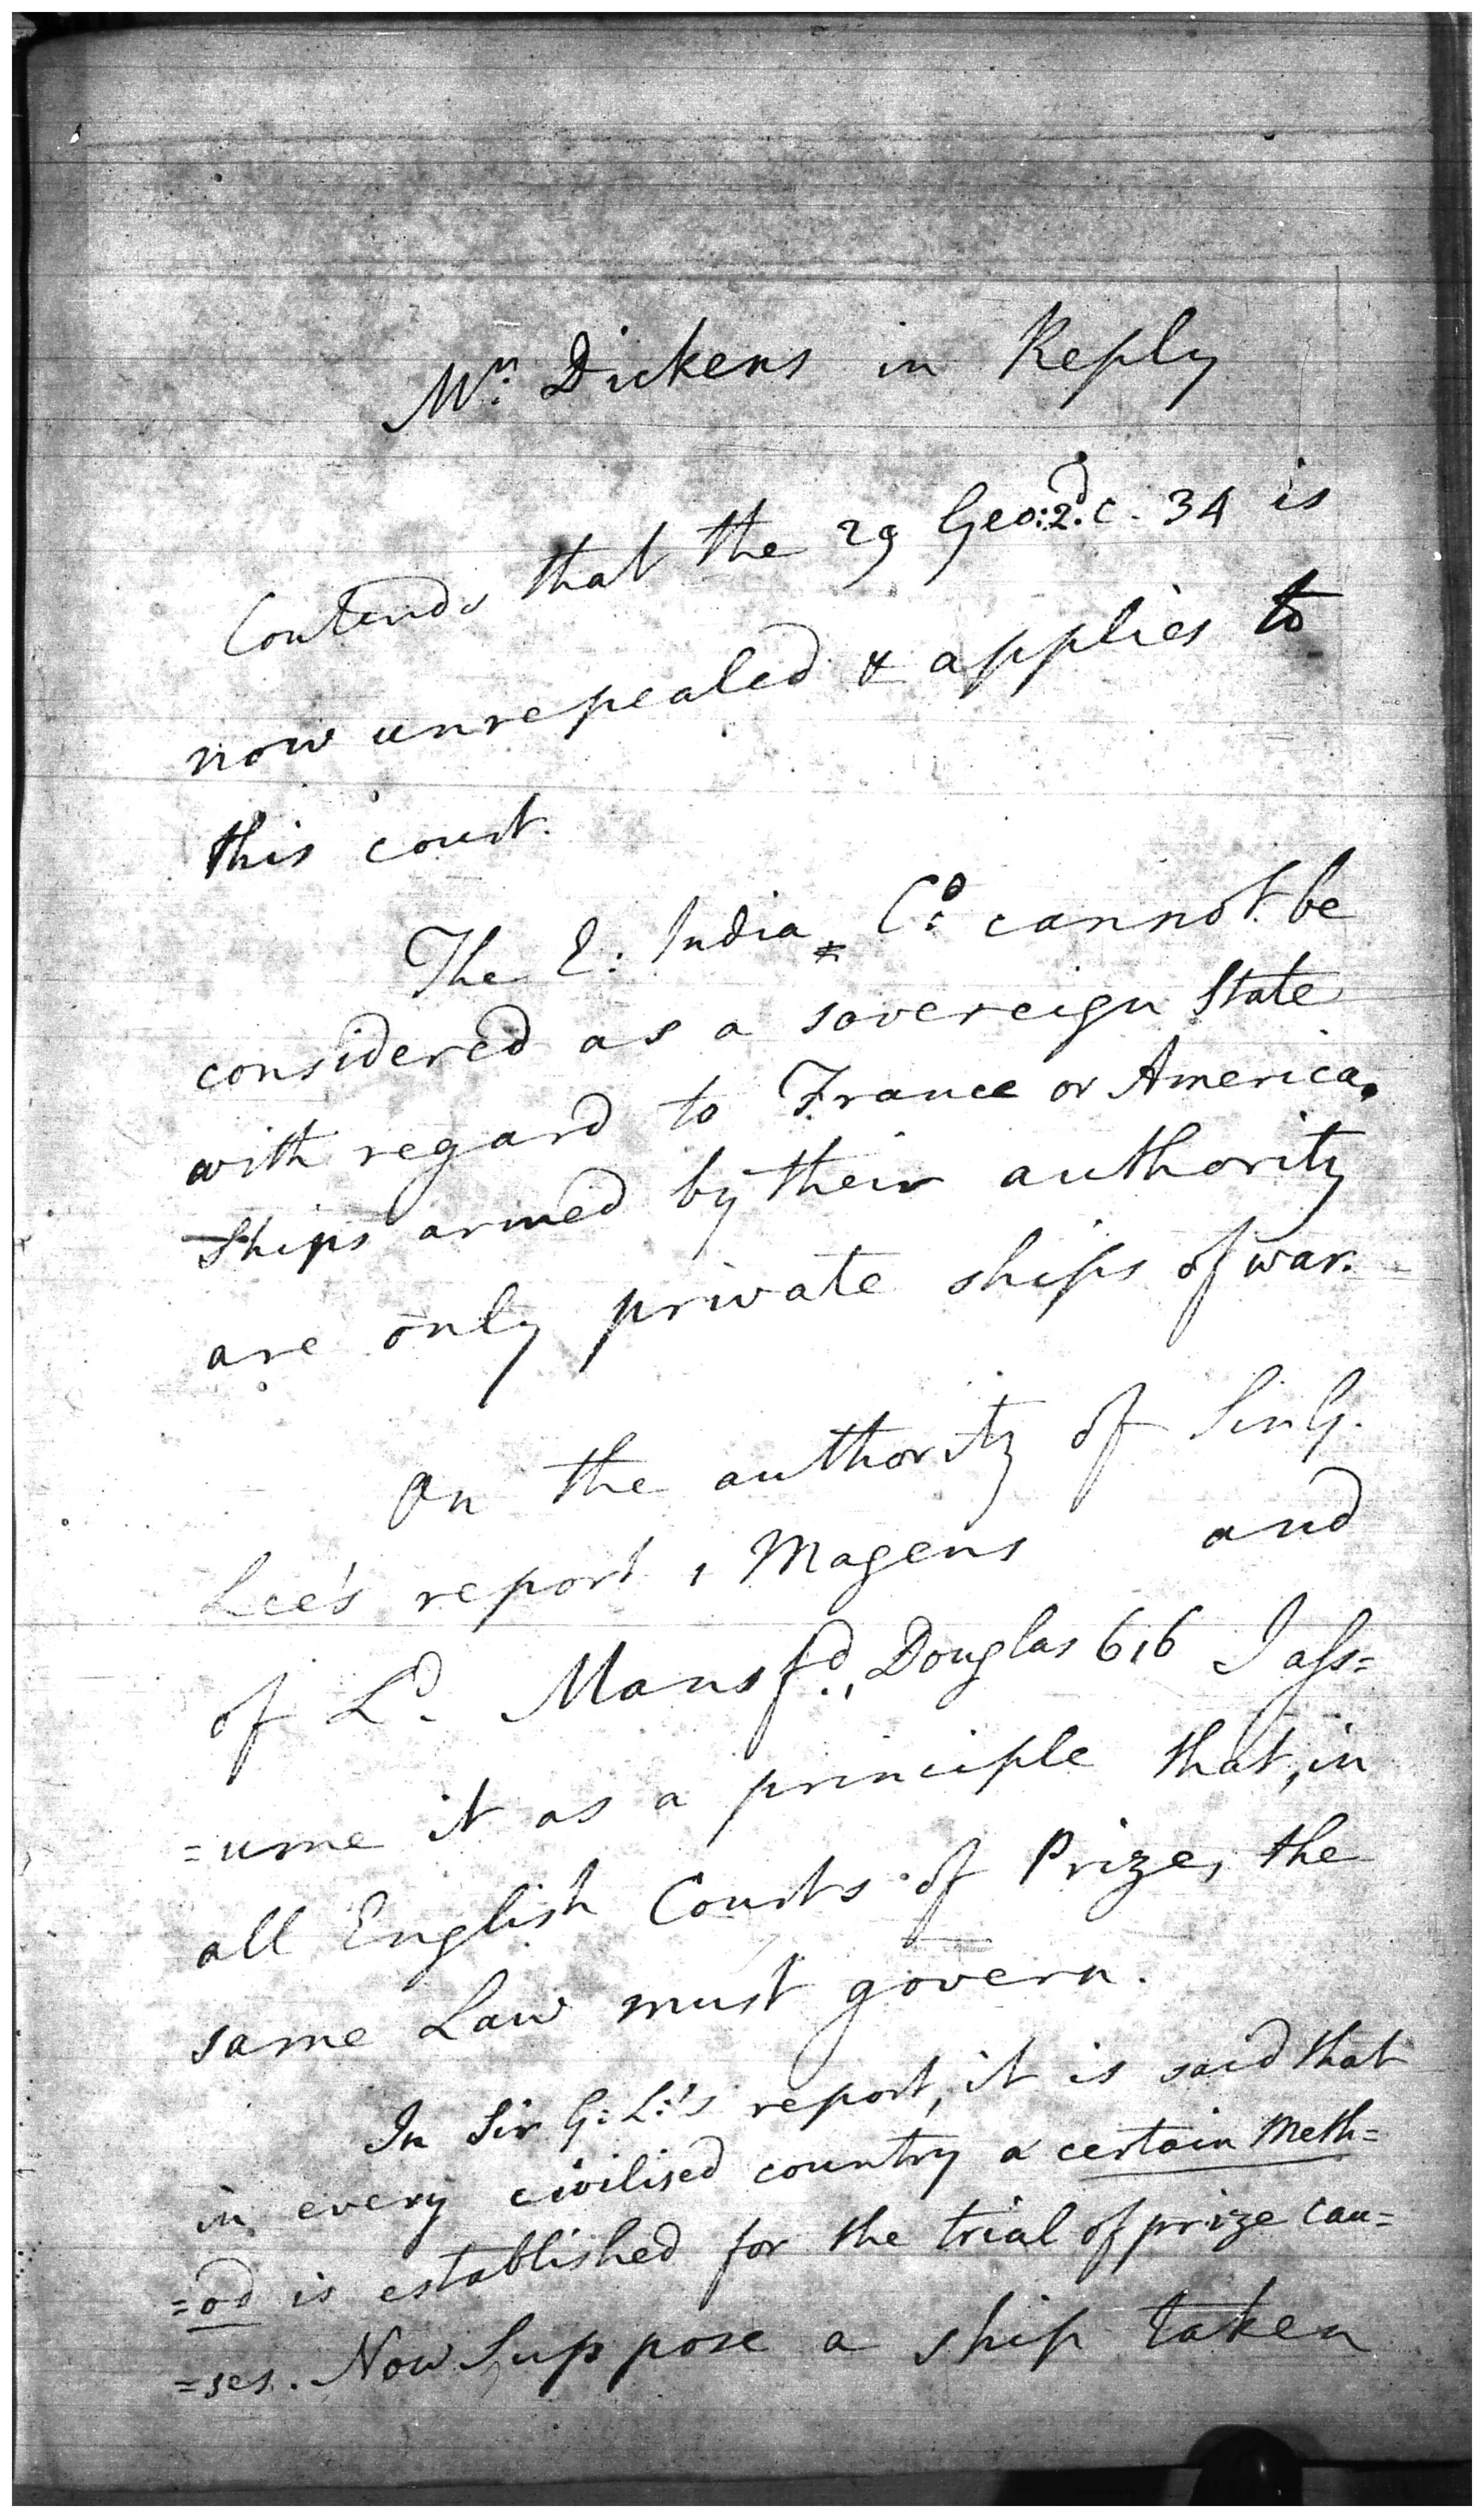 Mr. Dickens in Reply
Contends that the 29 Geo: 2d. c. 34 is
now unrepealed & applies to
this court.
The E: India Co: cannot be
considered as a sovereign State
with regard to France or America.
Ships armed by their authority
are only private ships of war.
On the authority of Sir G.
Lee's report, Magens and
of Ld. Mansfd., Douglas 616 I ass=
=ume it as a principle that, in
all English Courts of Prize, the
same Law must govern.
In Sir G: L:'s report, it is said that
in every civilised country a certain Meth=
=od is established for the trial of prize cau=
=ses. Now Suppose a ship taken